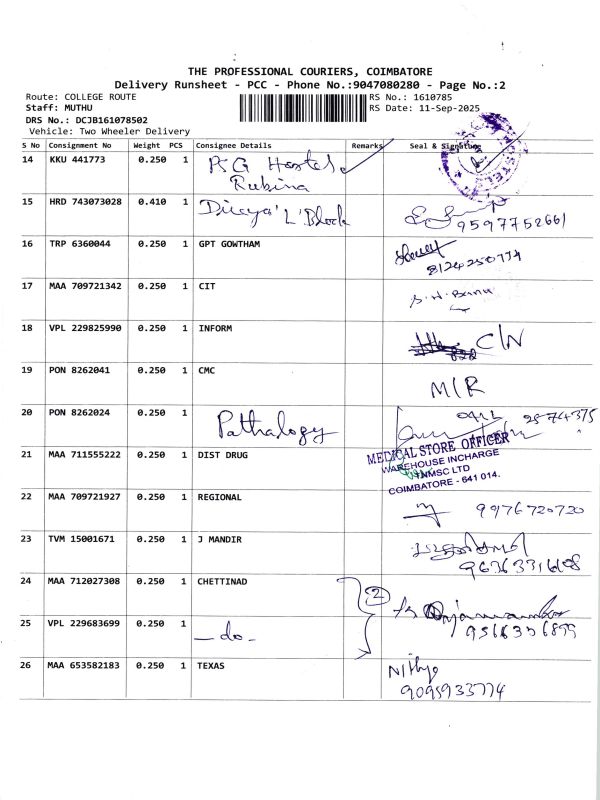 THE PROFESSIONAL COURIERS, COIMBATORE
Delivery Runsheet - PCC - Phone No.:9047080280 - Page No.:2
Route: COLLEGE ROUTE RS No.: 1610785
Staff: MUTHU RS Date: 11-Sep-2025
DRS No.: DCJB161078502
Vehicle: Two Wheeler Delivery
S No Consignment No Weight PCS Consignee Details Remarks Seal & Signature
14 KKU 441773 0.250 1 PG Hostel
Rubina
15 HRD 743073028 0.410 1 Divya 'L' Block
9597752661
16 TRP 6360044 0.250 1 GPT GOWTHAM
8124250774
17 MAA 709721342 0.250 1 CIT S.H. Banu
18 VPL 229825990 0.250 1 INFORM C/N
19 PON 8262041 0.250 1 CMC M/R
20 PON 8262024 0.250 1 Pathalogy 2574375
21 MAA 711555222 0.250 1 DIST DRUG MEDICAL STORE OFFICER
WAREHOUSE INCHARGE
TNMSC LTD
COIMBATORE - 641 014.
22 MAA 709721927 0.250 1 REGIONAL 9976720720
23 TVM 15001671 0.250 1 J MANDIR
24 MAA 712027308 0.250 1 CHETTINAD 2
25 VPL 229683699 0.250 1 -do- 9566356899
26 MAA 653582183 0.250 1 TEXAS Nithya
9095933774